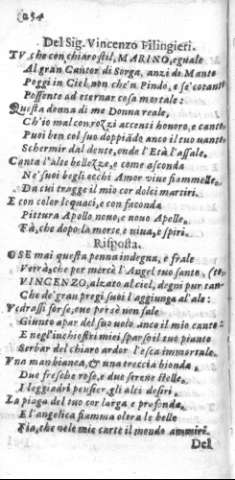 254
Del Sig. Vincenzo Filingieri.
TU, che con chiaro stil, MARINO, eguale
Al gran Cantor di Sorga, anzi di Manto
Poggi in Ciel, non che'n Pindo, e se' cotanto
Possente ad eternar cosa mortale:
Questa donna di me Donna reale,
Ch'io mal con rozzi accenti honoro, e canto
Puoi ben col suo doppiādo anco il tuo vanto
Schermir dal dente, onde l'Età l'assale.
Canta l'alte bellezze, e come asconda
Ne' suoi begli occhi Amor vive fiammelle,
Da cui tragge il mio cor dolci martiri.
E con color loquaci, e con faconda
Pittura Apollo novo, e novo Apelle,
Fà, che dopo la morte, e viva, e spiri.
Risposta.
O SE mai questa penna indegna, e frale
Verrà, che per mercè l'Angel tuo santo,
VINCENZO, alzato al ciel, degni pur tanto
Che de' gran pregi suoi l'aggiunga al' ale:
Vedrassi forse, ove per sè non sale
Giunto apar del suo volo anco il mio canto:
E negl'inchiostri miei sparso il tuo pianto
Serbar del chiaro ardor l'esca immortale.
Una man bianca, & una treccia bionda,
Due fresche rose, e due serene stelle,
I leggiadri pensier, gli alti desiri.
La piaga del tuo cor larga e profonda,
E l'angelica fiamma oltra le belle
Fia, che nele mie carte il mondo ammiri.
Del